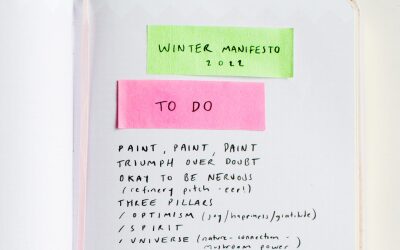 WINTER MANIFESTO
2022
TO DO
PAINT, PAINT, PAINT
TRIUMPH OVER DOUBT
OKAY TO BE NERVOUS
(refinery pitch - eep!)
THREE PILLARS
/ OPTIMISM (joy/happiness/gratitude)
/ SPIRIT
/ UNIVERSE (nature - connection -
mushroom power)